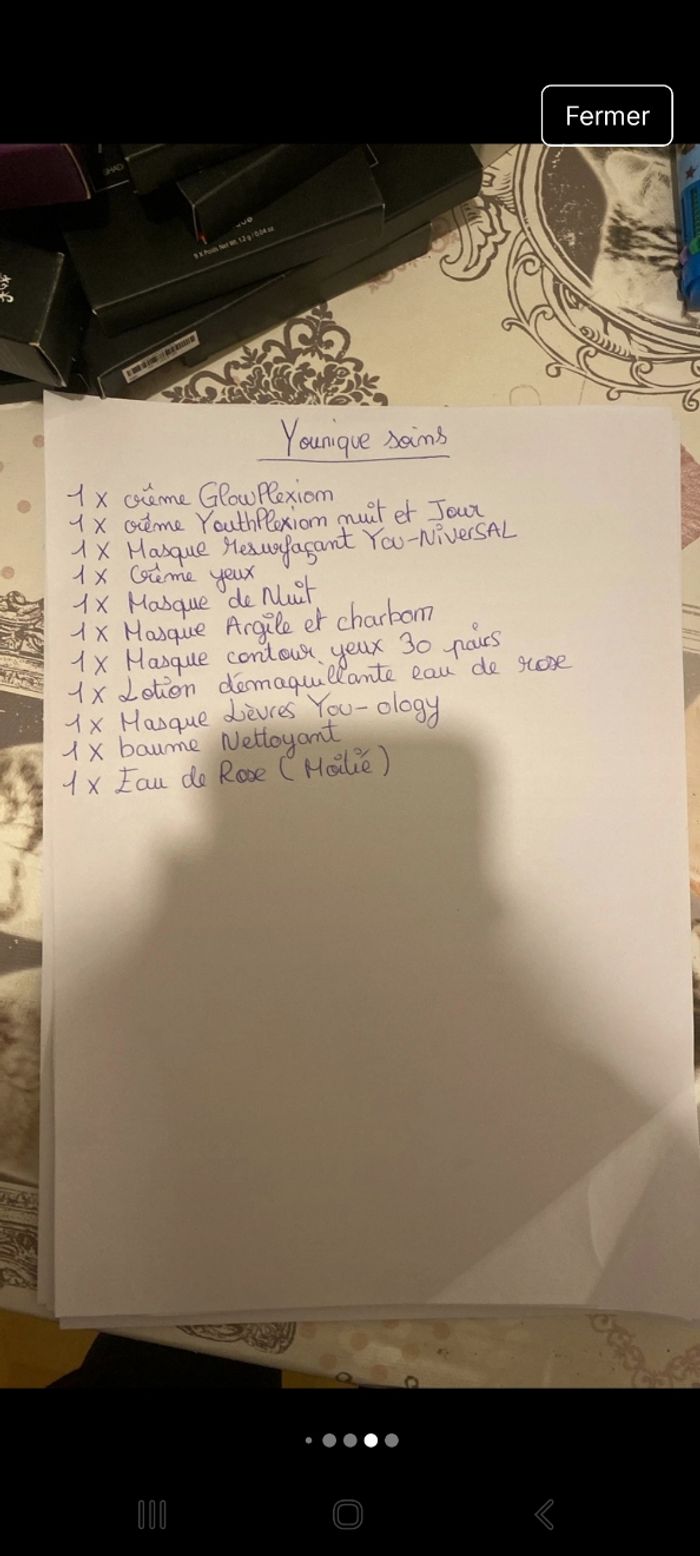 Fermer
SHAD
9 X Poids Net Wt. 1.2 g / 0.04 oz
Younique soins
1 x crème GlowPlexiom
1 x crème YouthPlexiom nuit et Jour
1 x Masque resurfaçant You-NiverSAL
1 x Crème yeux
1x Masque de Nuit
1x Masque Argile et charbom
1x Masque contour yeux 30 pairs
1x Lotion démaquillante eau de rose
1x Masque Lèvres You-ology
1x baume Nettoyant
1x Eau de Rose (Moitié)